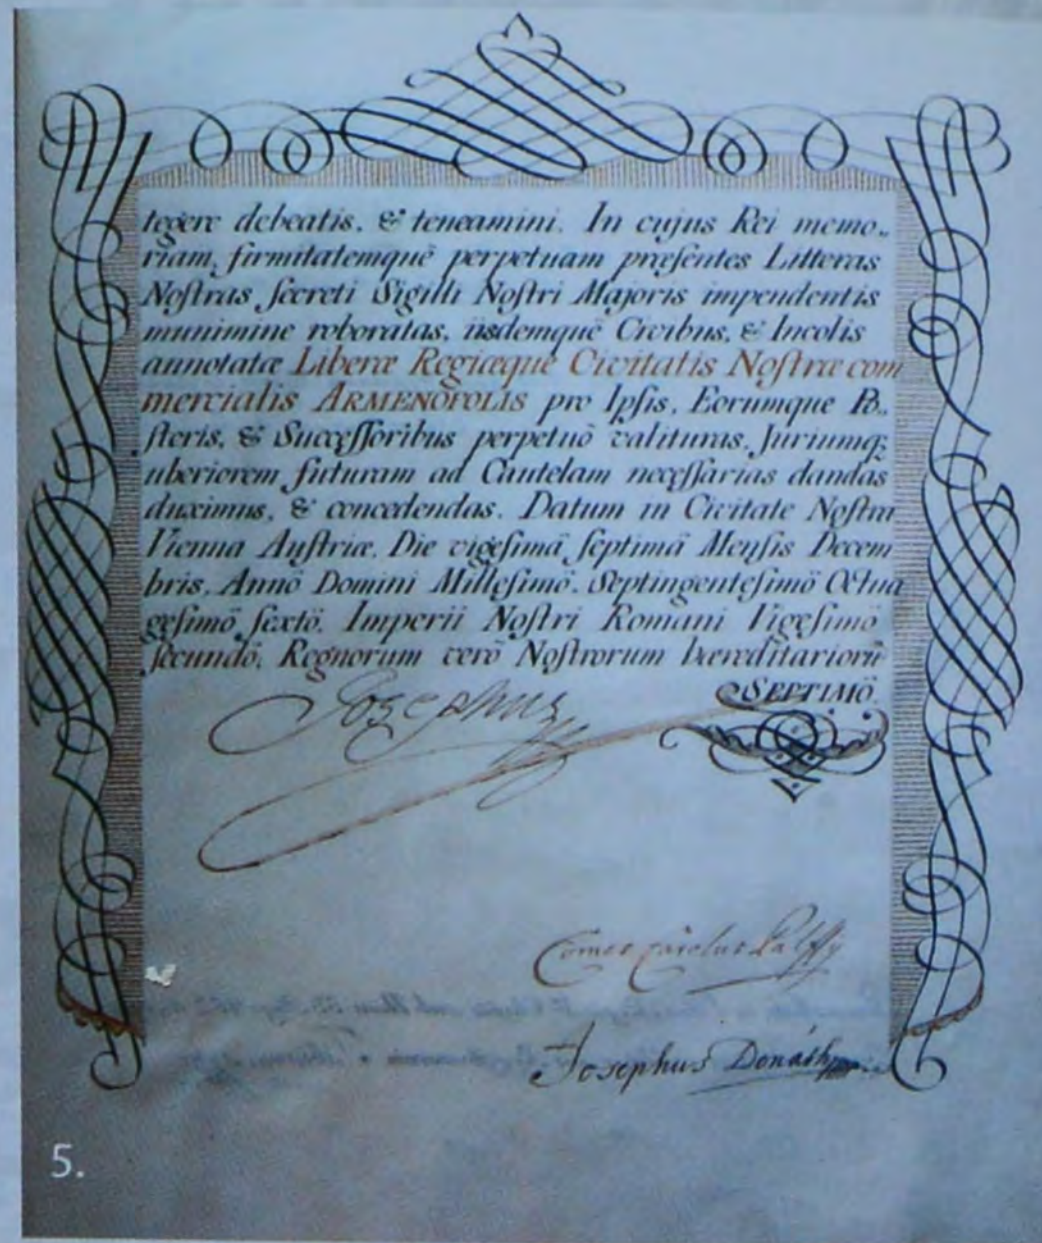 tegere debeatis, & teneamini. In cujus Rei memo„
riam, firmitatemquè perpetuam præſentes Litteras
Noſtras ſecreti Sigilli Noſtri Majoris impendentis
munimine roboratas, iisdemquè Civibus, & Incolis
annotatæ Liberæ Regiæque Civitatis Noſtræ com
mercialis ARMENOPOLIS pro Ipſis, Eorumque Po„
ſteris, & Succeſſoribus perpetuô valituras, Juriumq;
uberiorem futuram ad Cautelam neceſſarias dandas
duximus, & concedendas. Datum in Civitate Noſtra
Vienna Auſtriæ, Die vigeſimâ ſeptimâ Menſis Decem
bris, Annô Domini Milleſimô, Septingenteſimô Octua
geſimô ſextô, Imperii Noſtri Romani Vigeſimô
ſecundô, Regnorum verô Noſtrorum hæreditariorũ
SEPTIMÔ.
Josephus
Comes Carolus Palffy
Josephus Donáth
5.